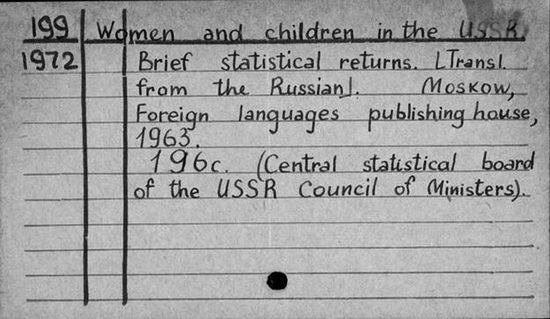 199 Women and children in the USSR.
1972 Brief statistical returns. [Transl.
from the Russian]. Moskow,
Foreign languages publishing house,
1963.
196c. (Central statistical board
of the USSR Council of Ministers).